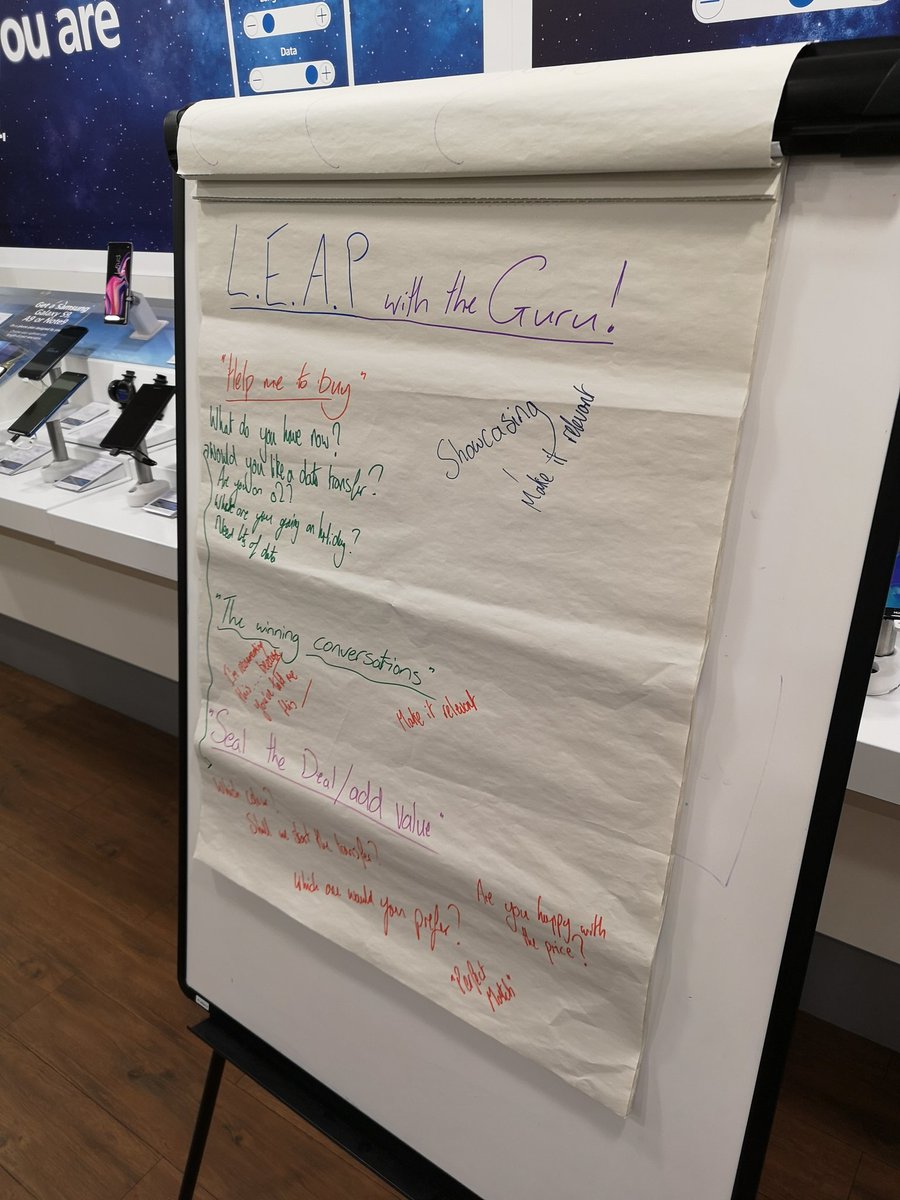 ou are
Data
Get a Samsung
Galaxy S9,
A9 or Note9
L.E.A.P with the Guru!
"Help me to buy"
What do you have now?
Would you like a data transfer?
Are you on o2?
What are you going on holiday?
Need lots of data
Showcasing
Make it relevant
"The winning conversations"
I'm recommending
this because
you've told me
this!
Make it relevant
"Seal the Deal/add value"
Which colour?
Shall we start the transfer?
Which one would you prefer?
Are you happy with
the price?
"Perfect
Match"